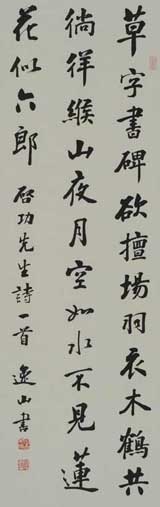 草字書碑欲擅場羽衣木鶴共
徜徉緱山夜月空如水不見蓮
花似六郎
啓功先生詩一首 逸山書